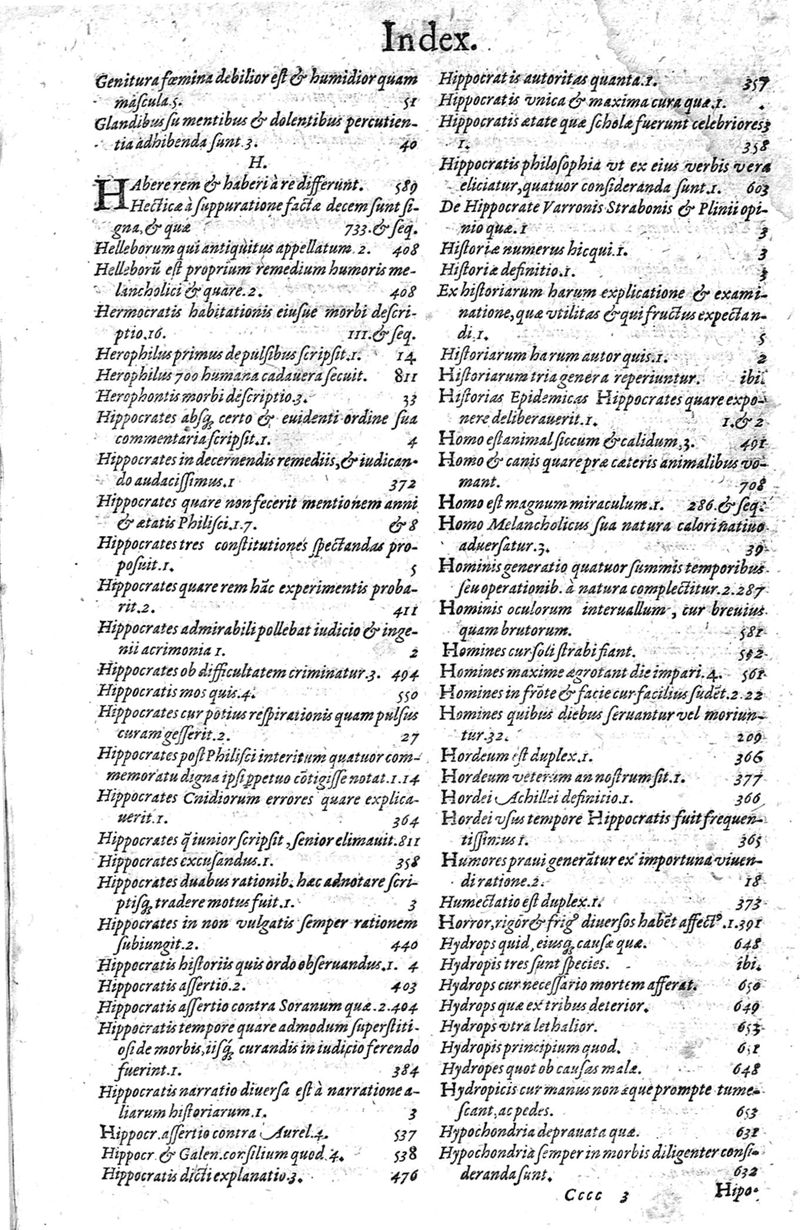 Index.
Genitura fœmina debilior est & humidior quam
mascula.5. 51
Glandibus su mentibus & dolentibus percutien-
tia adhibenda sunt.3. 40
H.
HAbere rem & haberi à re differunt. 589
Hecticæ à suppuratione factæ decem sunt si-
gna, & quæ 733.& seq.
Helleborum qui antiquitus appellatum.2. 408
Helleborũ est proprium remedium humoris me-
lancholici & quare.2. 408
Hermocratis habitationis eiusue morbi descri-
ptio.16. 111.& seq.
Herophilus primus de pulsibus scripsit.1. 14
Herophilus 700 humana cadauera secuit. 811
Herophontis morbi descriptio.3. 33
Hippocrates absq; certo & euidenti ordine sua
commentaria scripsit.1. 4
Hippocrates in decernendis remediis, & iudican-
do audacissimus.1 372
Hippocrates quare non fecerit mentionem anni
& ætatis Philisci.1.7. & 8
Hippocrates tres constitutiones spectandas pro-
posuit.1. 5
Hippocrates quare rem hãc experimentis proba-
rit.2. 411
Hippocrates admirabili pollebat iudicio & inge-
nii acrimonia 1. 2
Hippocrates ob difficultatem criminatur.3. 494
Hippocratis mos quis.4. 550
Hippocrates cur potius respirationis quam pulsus
curam gesserit.2. 27
Hippocrates post Philisci interitum quatuor com-
memoratu digna ipsi ppetuo cõtigisse notat.1.14
Hippocrates Cnidiorum errores quare explica-
uerit.1. 364
Hippocrates q̃ iunior scripsit, senior elimauit.811
Hippocrates excusandus.1. 358
Hippocrates duabus rationib. hæc adnotare scri-
ptisq; tradere motus fuit.1. 3
Hippocrates in non vulgatis semper rationem
subiungit.2. 440
Hippocratis historiis quis ordo obseruandus.1. 4
Hippocratis assertio.2. 403
Hippocratis assertio contra Soranum quæ.2.404
Hippocratis tempore quare admodum superstiti-
osi de morbis, iisq; curandis in iudicio ferendo
fuerint.1. 384
Hippocratis narratio diuersa est à narratione a-
liarum historiarum.1. 3
Hippocr. assertio contra Aurel.4. 537
Hippocr. & Galen. consilium quod.4. 538
Hippocratis dicti explanatio.3. 476
Hippocratis autoritas quanta.1. 357
Hippocratis vnica & maxima cura quæ.1.
Hippocratis ætate quæ scholæ fuerunt celebriores
1. 358
Hippocratis philosophia vt ex eius verbis vera
eliciatur, quatuor consideranda sunt.1. 603
De Hippocrate Varronis Strabonis & Plinii opi-
nio quæ.1 3
Historiæ numerus hic qui.1. 3
Historiæ definitio.1. 3
Ex historiarum harum explicatione & exami-
natione, quæ vtilitas & qui fructus expectan-
di.1. 5
Historiarum harum autor quis.1. 2
Historiarum tria genera reperiuntur. ibi.
Historias Epidemicas Hippocrates quare expo-
nere deliberauerit.1. 1.& 2
Homo est animal siccum & calidum,3. 491
Homo & canis quare præ cæteris animalibus vo-
mant. 708
Homo est magnum miraculum.1. 286.& seq.
Homo Melancholicus sua natura calori natiuo
aduersatur.3. 39
Hominis generatio quatuor summis temporibus
seu operationib. à natura complectitur.2.287
Hominis oculorum interuallum, cur breuius
quam brutorum. 581
Homines cur soli strabi fiant. 552
Homines maxime ægrotant die impari.4. 561
Homines in frõte & facie cur facilius sudẽt.2.22
Homines quibus diebus seruantur vel moriun-
tur.32. 209
Hordeum est duplex.1. 366
Hordeum veterum an nostrum sit.1. 377
Hordei Achillei definitio.1. 366
Hordei vsus tempore Hippocratis fuit frequen-
tissimus 1. 365
Humores praui generãtur ex importuna viuen-
di ratione.2. 18
Humectatio est duplex.1. 373
Horror, rigor & frigꝰ diuersos habẽt affectꝰ.1.391
Hydrops quid, eiusq; causæ quæ. 648
Hydropis tres sunt species. ibi.
Hydrops cur necessario mortem afferat. 650
Hydrops quæ ex tribus deterior. 649
Hydrops vtra lethalior. 653
Hydropis principium quod. 651
Hydropes quot ob causas malæ. 648
Hydropicis cur manus non æque prompte tume-
scant, ac pedes. 653
Hypochondria deprauata quæ. 631
Hypochondria semper in morbis diligenter consi-
deranda sunt. 632
Cccc 3 Hipo-